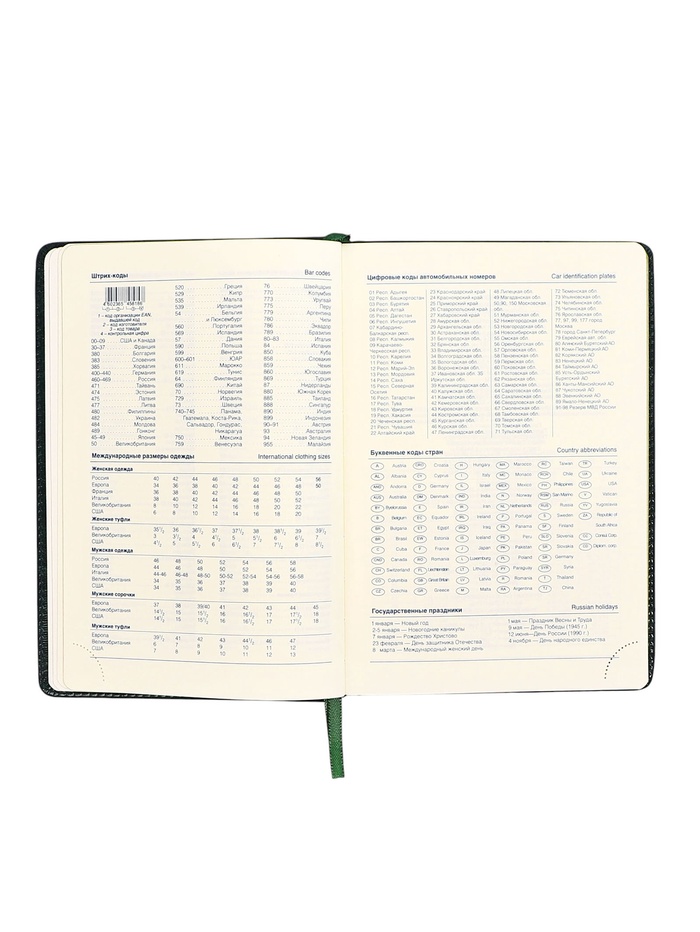 Штрих-коды Bar codes
4 602365 458186
1 – код организации EAN,
выдавшей код
2 – код изготовителя
3 – код товара
4 – контрольная цифра
00–09 США и Канада
30–37 Франция
380 Болгария
383 Словения
385 Хорватия
400–440 Германия
460–469 Россия
471 Тайвань
474 Эстония
475 Латвия
477 Литва
480 Филиппины
482 Украина
484 Молдова
489 Гонконг
45–49 Япония
50 Великобритания
520 Греция
529 Кипр
535 Мальта
539 Ирландия
54 Бельгия
и Люксембург
560 Португалия
569 Исландия
57 Дания
590 Польша
599 Венгрия
600–601 ЮАР
611 Марокко
619 Тунис
64 Финляндия
690 Китай
70 Норвегия
729 Израиль
73 Швеция
740–745 Панама,
Гватемала, Коста-Рика,
Сальвадор, Гондурас,
Никарагуа
750 Мексика
759 Венесуэла
76 Швейцария
770 Колумбия
773 Уругвай
775 Перу
779 Аргентина
780 Чили
786 Эквадор
789 Бразилия
80–83 Италия
84 Испания
850 Куба
858 Словакия
859 Чехия
860 Югославия
869 Турция
87 Нидерланды
880 Южная Корея
885 Таиланд
888 Сингапур
890 Индия
899 Индонезия
90–91 Австрия
93 Австралия
94 Новая Зеландия
955 Малайзия
Международные размеры одежды International clothing sizes
Женская одежда
Россия 40 42 44 46 48 50 52 54 56
Европа 34 36 38 40 42 44 46 48 50
Франция 36 38 40 42 44 46 48 50
Италия 38 40 42 44 46 48 50 52
Великобритания 8 10 12 14 16 18 20 22
США 6 8 10 12 14 16 18 20
Женские туфли
Европа 35½ 36 36½ 37 37½ 38 38½ 39 39½
Великобритания
США
Мужская одежда
Россия 46 48 50 52 54 56 58
Европа 44 46 48 50 52 54 56
Италия 44-46 46-48 48-50 50-52 52-54 54-56 56-58
Великобритания 34 35 36 37 38 39 40
США 34 35 36 37 38 39 40
Мужские сорочки
Европа 37 38 39/40 41 42 43 44 45
Великобритания
США
Мужские туфли
Европа 39½ 41 42 43 44½ 46 47
Великобритания 6 7 8 9 10 11 12
США
Цифровые коды автомобильных номеров Car identification plates
01 Респ. Адыгея
02 Респ. Башкортостан
03 Респ. Бурятия
04 Респ. Алтай
05 Респ. Дагестан
06 Респ. Ингушетия
07 Кабардино-
Балкарская Респ.
08 Респ. Калмыкия
09 Карачаево-
Черкесская респ.
10 Респ. Карелия
11 Респ. Коми
12 Респ. Марий-Эл
13 Респ. Мордовия
14 Респ. Саха
15 Респ. Северная
Осетия
16 Респ. Татарстан
17 Респ. Тува
18 Респ. Удмуртия
19 Респ. Хакасия
20 Чеченская респ.
21 Респ. Чувашия
22 Алтайский край
23 Краснодарский край
24 Красноярский край
25 Приморский край
26 Ставропольский край
27 Хабаровский край
28 Амурская обл.
29 Архангельская обл.
30 Астраханская обл.
31 Белгородская обл.
32 Брянская обл.
33 Владимирская обл.
34 Волгоградская обл.
35 Вологодская обл.
36 Воронежская обл.
37 Ивановская обл. 38
Иркутская обл.
39 Калининградская обл.
40 Калужская обл.
41 Камчатская обл.
42 Кемеровская обл.
43 Кировская обл.
44 Костромская обл.
45 Курганская обл.
46 Курская обл.
47 Ленинградская обл.
48 Липецкая обл.
49 Магаданская обл.
50,90, 150 Московская
обл.
51 Мурманская обл.
52 Нижегородская обл.
53 Новгородская обл.
54 Новосибирская обл.
55 Омская обл.
56 Оренбургская обл.
57 Орловская обл.
58 Пензенская обл.
59 Пермская обл.
60 Псковская обл.
61 Ростовская обл.
62 Рязанская обл.
63 Самарская обл.
64 Саратовская обл.
65 Сахалинская обл.
66 Свердловская обл.
67 Смоленская обл.
68 Тамбовская обл.
69 Тверская обл.
70 Томская обл.
71 Тульская обл.
72 Тюменская обл.
73 Ульяновская обл.
74 Челябинская обл.
75 Читинская обл.
76 Ярославская обл.
77, 97, 99, 177 город
Москва
78 город Санкт-Петербург
79 Еврейская авт. обл.
80 Агинский Бурятский АО
81 Коми-Пермяцкий АО
82 Корякский АО
83 Ненецкий АО
84 Таймырский АО
85 Усть-Ордынский
Бурятский АО
86 Ханты-Мансийский АО
87 Чукотский АО
88 Эвенкийский АО
89 Ямало-Ненецкий АО
Буквенные коды стран Country abbreviations
A Austria
Albania
Andorra
AUS Australia
Byelorussia
B Belgium
Bulgaria
Brasil
C Cuba
Canada
CH Switzerland
CO Columbia
CZ Czechia
Croatia
Cyprus
D Germany
Denmark
E Spain
EC Ecuador
ET Egypt
Estonia
F France
Romania
Liechtenstein
Great Britain
GR Greece
H Hungary
Italy
Israel
India
Iran
Ireland
Iraq
Iceland
J Japan
L Luxemburg
LT Lithuania
Latvia
M Malta
Marocco
Monaco
MEX Mexico
N Norway
NL Netherlands
P Portugal
Panama
Peru
Pakistan
PL Poland
Paraguay
R Romania
RA Argentina
Taiwan
Chile
Philippines
San Marino
Russia
S Sweden
Finland
Slovakia
Slovenia
Germany
Syria
Thailand
China
Turkey
Ukraine
USA
Vatican
Yugoslavia
Государственные праздники Russian holidays
1 января — Новый год
2-5 января — Новогодние каникулы
7 января — Рождество Христово
23 февраля — День защитника Отечества
8 марта — Международный женский день
1 мая — Праздник Весны и Труда
9 мая — День Победы (1945 г.)
12 июня—День России (1990 г.)
4 ноября — День народного единства